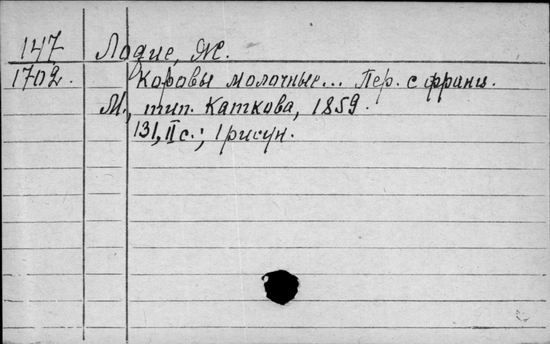 147 Лодие, Ж.
1702. Коровы молочные... Пер. с франц.
М., тип. Каткова, 1859.
131, II с.; 1 рисун.